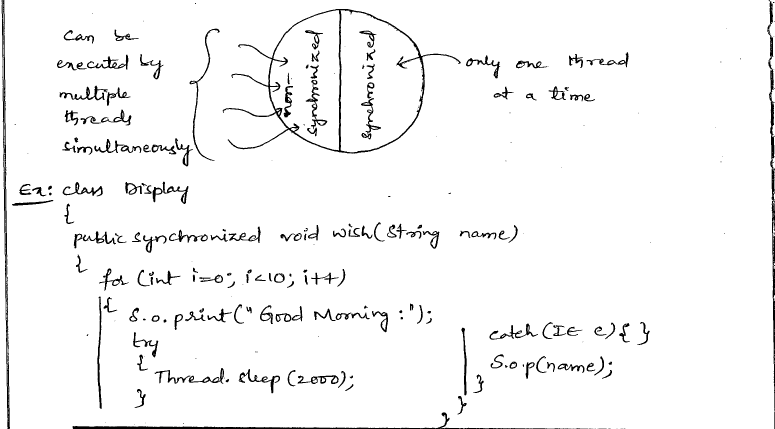 can be
executed by
multiple
threads
simultaneously
non-
synchronized
synchronized
only one thread
at a time
Ex: class Display
{
public synchronized void wish(String name)
{
for (int i=0; i<10; i++)
{ S.o.print("Good Morning :");
try
{
Thread.sleep(2000);
}
catch (IE e) { }
S.o.p(name);
}
}
}